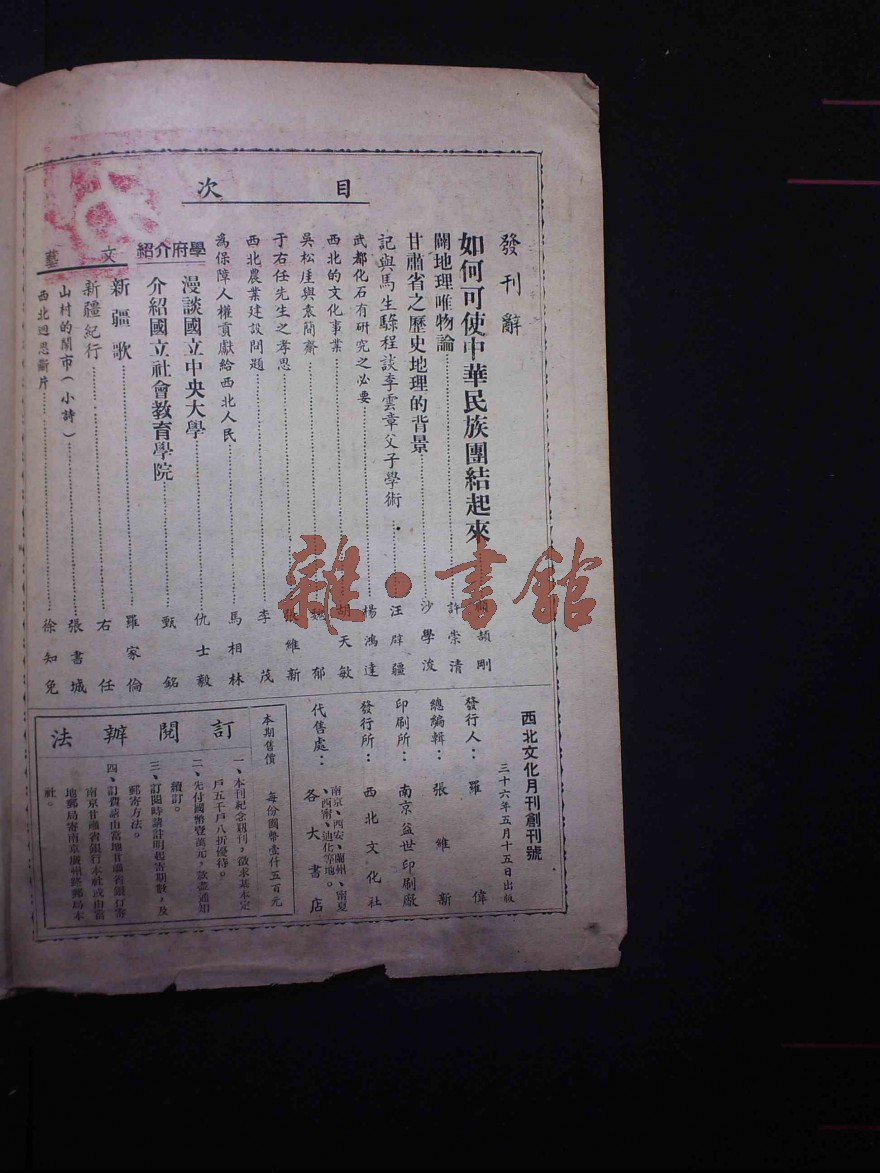 目次
發刊辭
如何可使中華民族團結起來 顧頡剛
闢地理唯物論 許崇清
甘肅省之歷史地理的背景 沙學浚
記與馬生騄程談李雲章父子學術 汪辟疆
武都化石有研究之必要 楊鴻達
西北的文化事業 胡天敏
吳松崖與袁簡齋 魏郁
于右任先生之孝思 張維新
西北農業建設問題 李茂
為保障人權貢獻給西北人民 馬相林
學府介紹
漫談國立中央大學 仇士毅
介紹國立社會教育學院 甄銘
文藝
新疆歌 羅家倫
新疆紀行 右任
山村的鬧市(小詩) 張書城
西北迴思斷片 徐知免
西北文化月刊創刊號
三十六年五月十五日出版
發行人:羅偉
總編輯:張維新
印刷所:南京益世印刷廠
發行所:西北文化社
代售處:南京、西安、蘭州、寧夏、西寧、迪化等地。各大書店
本期售價 每份國幣壹仟五百元
訂閱辦法
一、本刊紀念創刊,徵求基本定
戶五千戶八折優待。
二、先付國幣壹萬元,款盡通知
續訂。
三、訂閱時請註明起寄期數,及
郵寄方法。
四、訂費請由當地甘肅省銀行寄
南京甘肅省銀行本社或由當
地郵局寄南京廣州路郵局本
社。
雜·書館